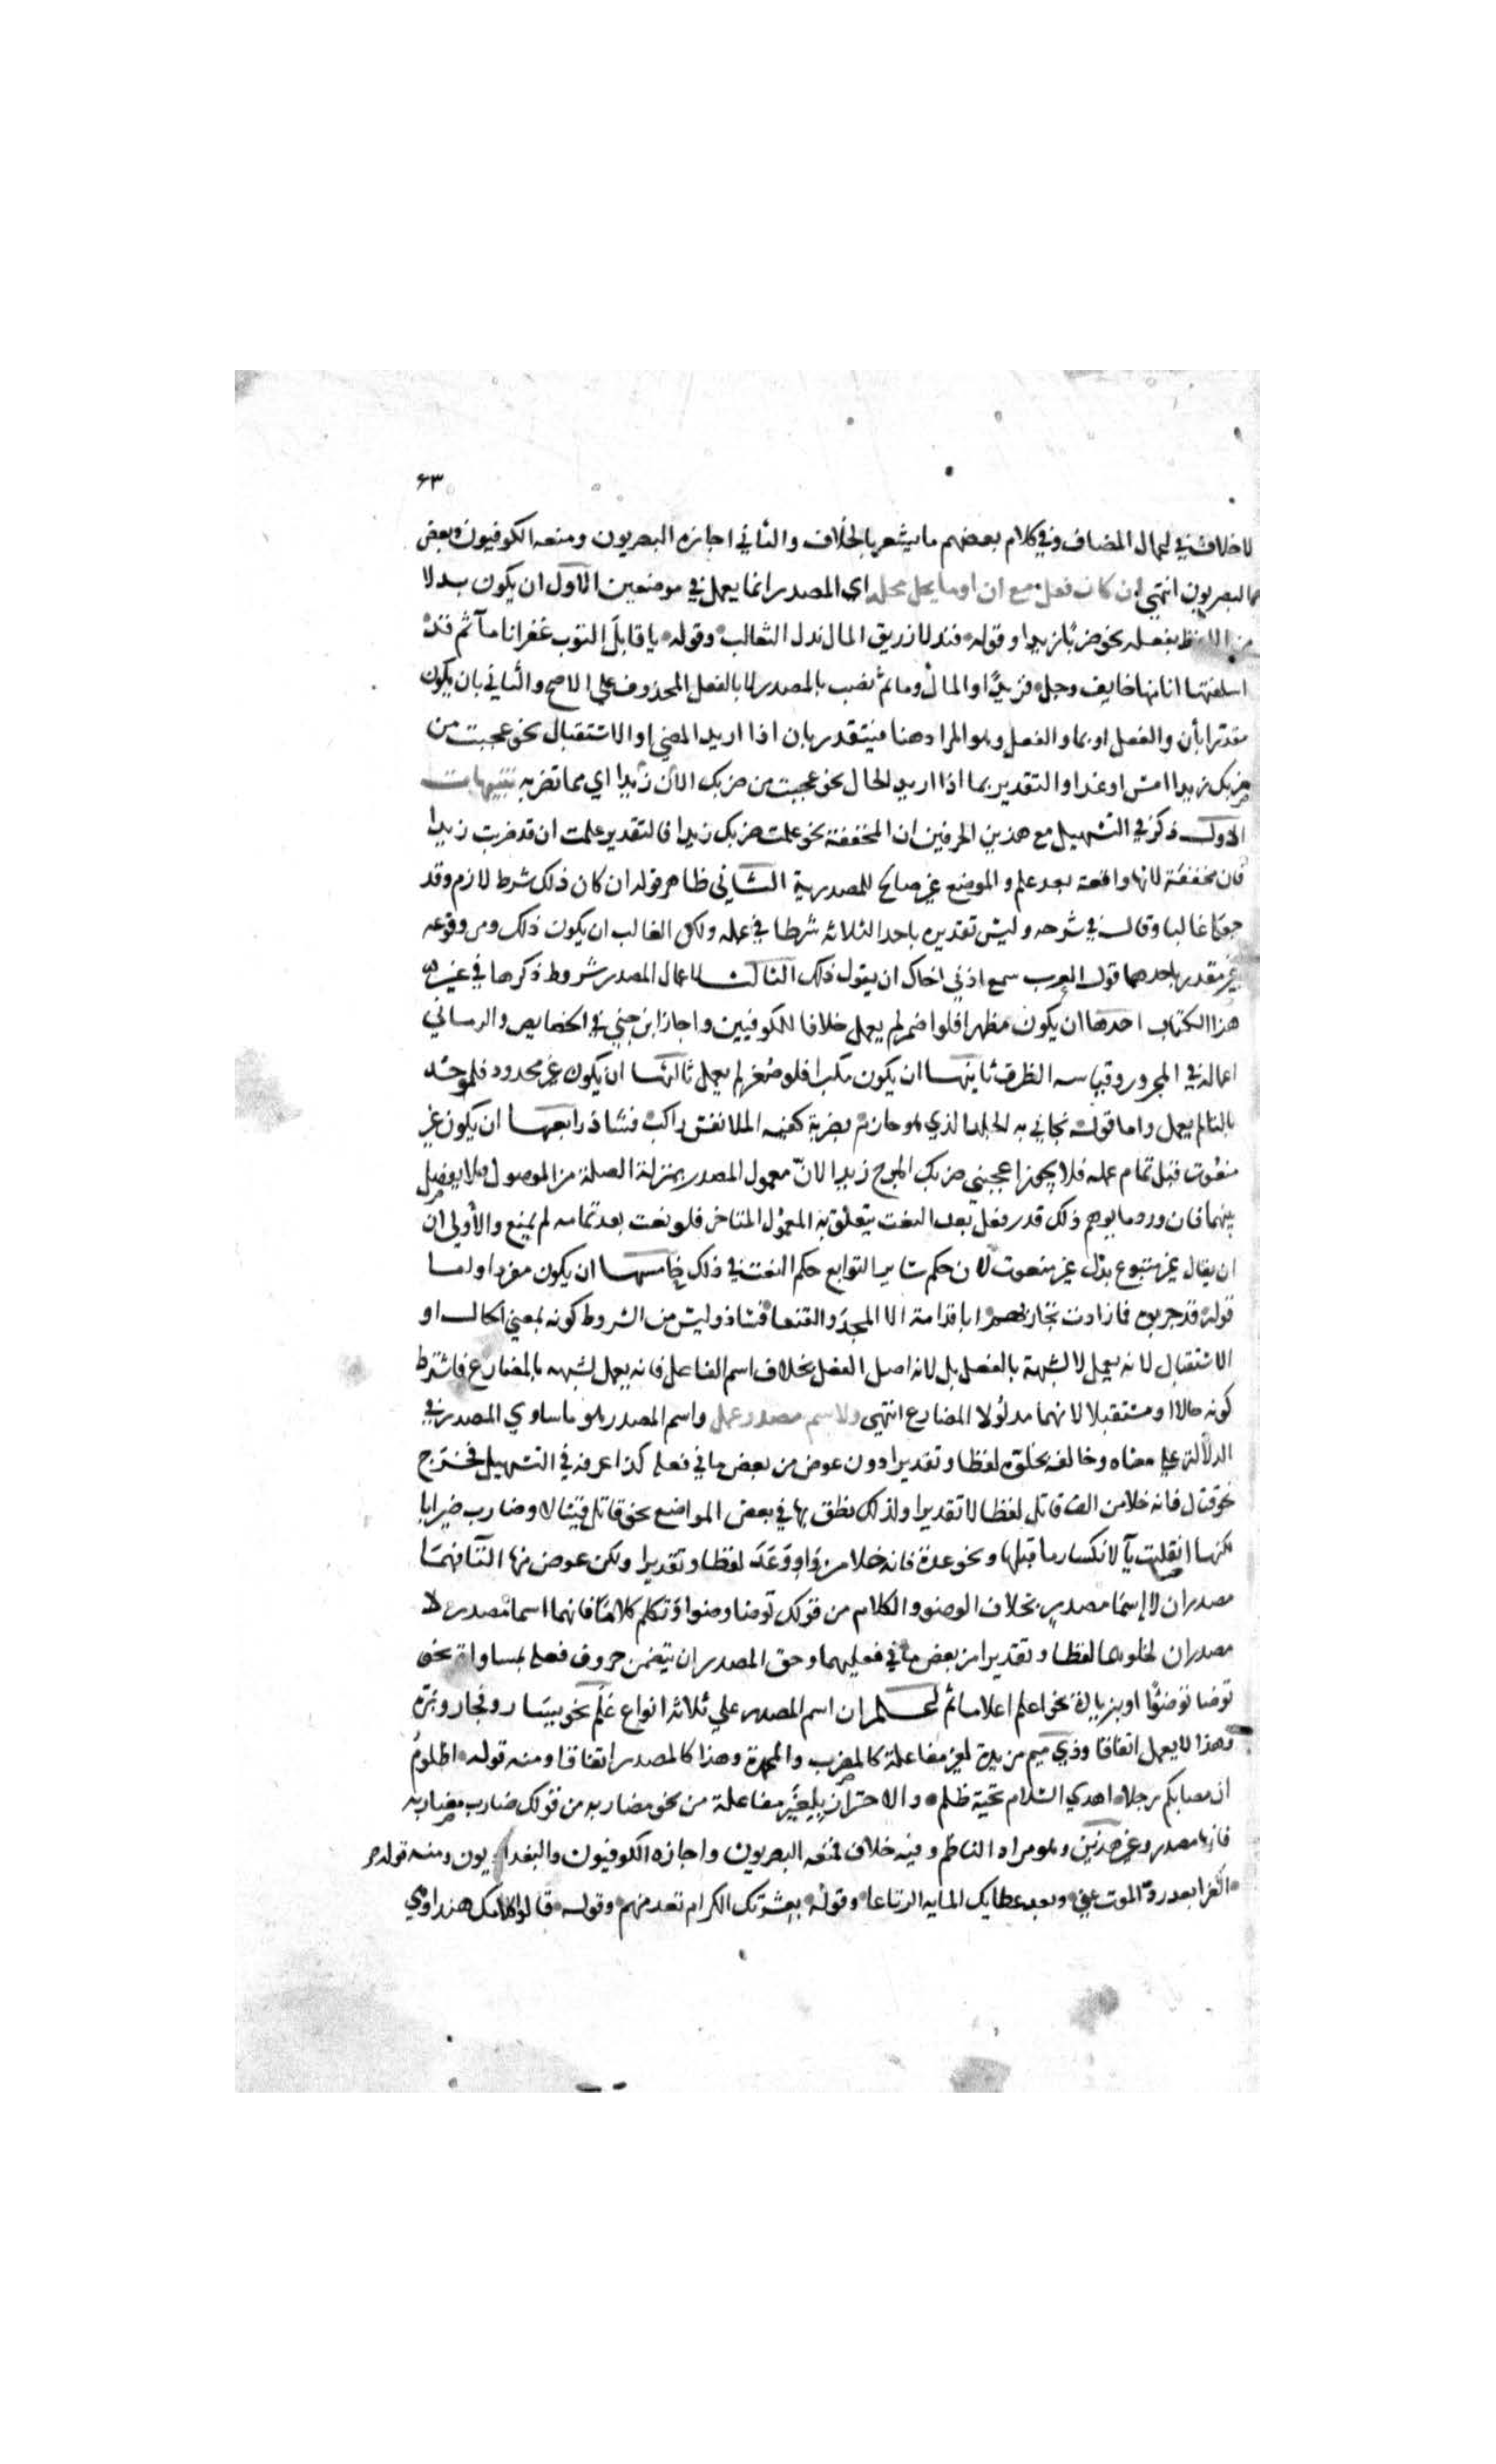 ٦٣
لا خلاف في اعمال المضاف وفي كلام بعضهم ما يشعر بالخلاف والثاني اجازه البصريون ومنعه الكوفيون وبعض
البصريون انتهي ان كان فعل مع ان او ما يحل محله اي المصدر انما يعمل في موضعين الاول ان يكون بدلا
من اللفظ بفعله نحو ضربا زيدا وقوله فندلا زريق المال ندل الثعالب وقوله يا قابل التوب غفرانا مآثم قد
اسلفتها انا منها خايف وجل فزيدًا والمال ومآثم نصب بالمصدر لا بالفعل المحذوف علي الاصح والثاني بان يكون
مقدرا بأن والفعل او بما والفعل وهو المراد هنا فيتقدر بان اذا اريد المضي او الاستقبال نحو عجبت من
ضربك زيدا امس او غدا والتقدير بما اذا اريد الحال نحو عجبت من ضربك الآن زيدا اي مما تضربه تنبيهات
الاول ذكر في التسهيل مع هذين الحرفين ان المخففة نحو علمت ضربك زيدا فالتقدير علمت ان قد ضربت زيدا
فان مخففة لانها واقعة بعد علم والموضع غير صالح للمصدرية الثاني ظاهر قوله ان كان ذلك شرط لازم وقد
جعله غالبا وقال في شرحه وليس تقديره باحد الثلاثه شرطا في عمله ولكن الغالب ان يكون ذلك ومن وقوعه
غير مقدر باحدها قول العرب سمع اذني اخاك ان يقول ذلك الثالث لاعمال المصدر شروط ذكرها في غير
هذا الكتاب احدها ان يكون مظهرا فلو اضمر لم يعمل خلافا للكوفيين واجاز ابن جني في الخصايص والرماني
اعماله في المجرور وقياسه الظرف ثانيها ان يكون مكبرا فلو صغر لم يعمل ثالثها ان يكون غير محدود فلو حد
بالتا لم يعمل واما قوله يحايي به الجلد الذي هو حازم بضربة كفيه الملا نفس راكب فشاذ رابعها ان يكون غير
منعوت قبل تمام عمله فلا يجوز اعجبني ضربك المبرح زيدا لانّ معمول المصدر بمنزلة الصلة من الموصول فلا يفصل
بينهما فان ورد ما يوهم ذلك قدر فعل بعد النعت يتعلق به المعمول المتاخر فلو نعت بعد تمامه لم يمنع والأولي ان
ان يقال غير متبوع بدل غير منعوت لان حكم ساير التوابع حكم النعت في ذلك خامسها ان يكون مفردا واما
قوله قد جربوه فما زادت تجاربهم ابا قدامة الا المجد والفنعا فشاذ وليس من الشروط كونه بمعني الحال او
الاستقبال لانه يعمل لا لشبهه بالفعل بل لانه اصل الفعل بخلاف اسم الفاعل فانه يعمل لشبهه بالمضارع فاشترط
كونه حالا او مستقبلا لانهما مدلولا المضارع انتهي ولاسم مصدر عمل واسم المصدر هو ما ساوي المصدر في
الدلالة علي معناه وخالفه بخلوه لفظا وتقديرا دون عوض من بعض ما في فعله كذا عرفه في التسهيل فخرج
نحو قتال فانه خلا من الف قاتل لفظا لا تقديرا ولذلك نطق بها في بعض المواضع نحو قاتل قيتالا وضارب ضيرابا
لكنها انقلبت يآ لانكسار ما قبلها ونحو عدة فانه خلا من وَاو وَعَدَ لفظا وتقديرا ولكن عوض منها التآ فهما
مصدران لا اسما مصدر بخلاف الوضو والكلام من قولك توضا وضوا وتكلم كلاما فانهما اسما مصدر لا
مصدران لخلوهما لفظا وتقديرا من بعض ما في فعليهما وحق المصدر ان يتضمن حروف فعله بمساواة نحو
توضا توضئًا او بزيادة نحو اعلم اعلاما ثم اعلم ان اسم المصدر علي ثلاثة انواع علم نحو يسار وفجار وبرّة
وهذا لا يعمل اتفاقا وذي ميم مزيدة لغير مفاعلة كالمضرب والمحمدة وهذا كالمصدر اتفاقا ومنه قوله اظلوم
ان مصابكم رجلا اهدي السلام تحية ظلم والاحتراز بلغير مفاعلة من نحو مضاربه من قولك ضارب مضاربه
فانها مصدر وغير هذين وهو مراد الناظم وفيه خلاف فمنعه البصريون واجازه الكوفيون والبغداديون ومنه قوله
اكفرا بعد رد الموت عني وبعد عطايك المايه الرتاعا وقوله بعشرتك الكرام تعد منهم وقوله قالوا كلامك هندا وهي